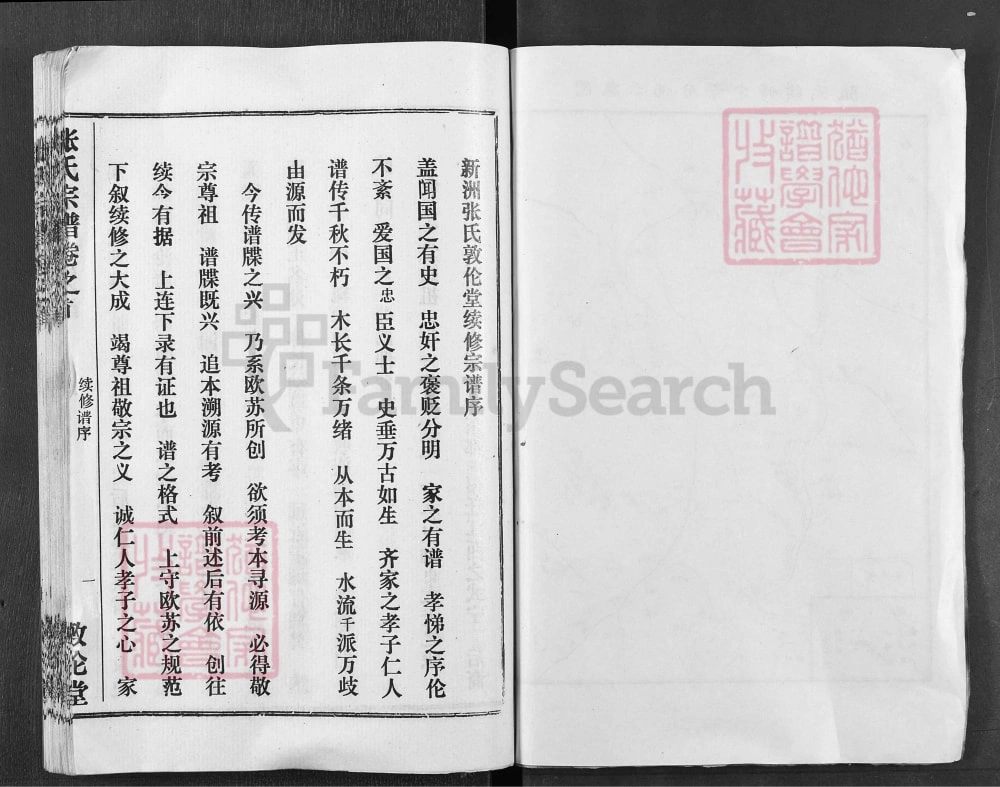 新洲张氏敦伦堂续修宗谱序
盖闻国之有史　忠奸之褒贬分明　家之有谱　孝悌之序伦
不紊　爱国之忠臣义士　史垂万古如生　齐家之孝子仁人
谱传千秋不朽　木长千条万绪　从本而生　水流千派万歧
由源而发
今传谱牒之兴　乃系欧苏所创　欲须考本寻源　必得敬
宗尊祖　谱牒既兴　追本溯源有考　叙前述后有依　创往
续今有据　上连下录有证也　谱之格式　上守欧苏之规范
下叙续修之大成　竭尊祖敬宗之义　诚仁人孝子之心　家
张氏宗谱卷之首
续修谱序
一
敦伦堂
FamilySearch
猶他家譜學會收藏
猶他家譜學會收藏